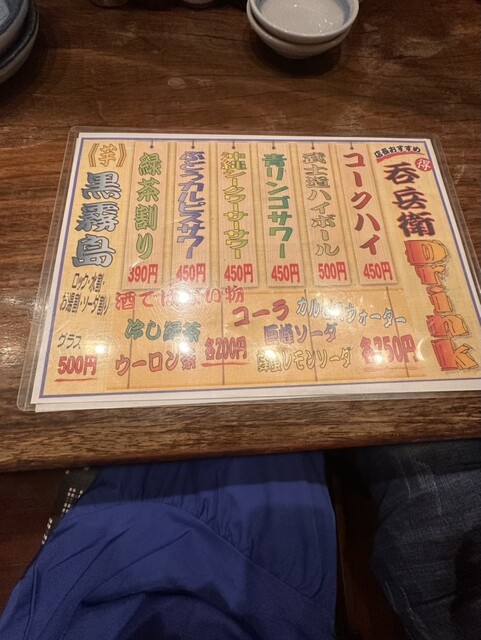 店長おすすめ
得
呑兵衛
Drink
コークハイ
450円
武士道ハイボール
500円
青リンゴサワー
450円
沖縄シークワーサーサワー
450円
ぶどうカルピスサワー
450円
緑茶割り
390円
《芋》
黒霧島
ロック・水割・
お湯割・ソーダ割り
グラス
500円
酒ではない物
冷し緑茶
ウーロン茶
各200円
コーラ
カルピスウォーター
巨峰ソーダ
レモンソーダ
各250円